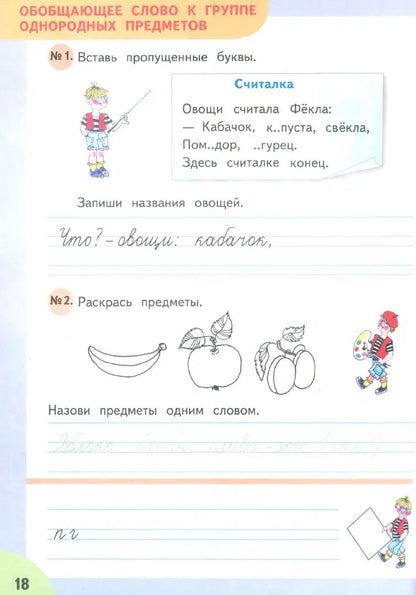 ОБОБЩАЮЩЕЕ СЛОВО К ГРУППЕ
ОДНОРОДНЫХ ПРЕДМЕТОВ
№1. Вставь пропущенные буквы.
Считалка
Овощи считала Фёкла:
— Кабачок, к..пуста, свёкла,
Пом..дор, ..гурец.
Здесь считалке конец.
Запиши названия овощей.
Что? - овощи: кабачок,
№2. Раскрась предметы.
Назови предметы одним словом.
Яблоко банан слива - это (что?)
п г
18